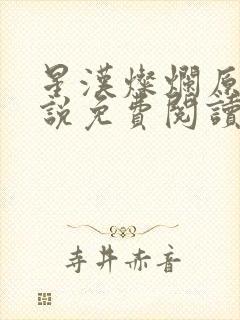 星漢燦爛原
說免費閱讀
寺井赤音